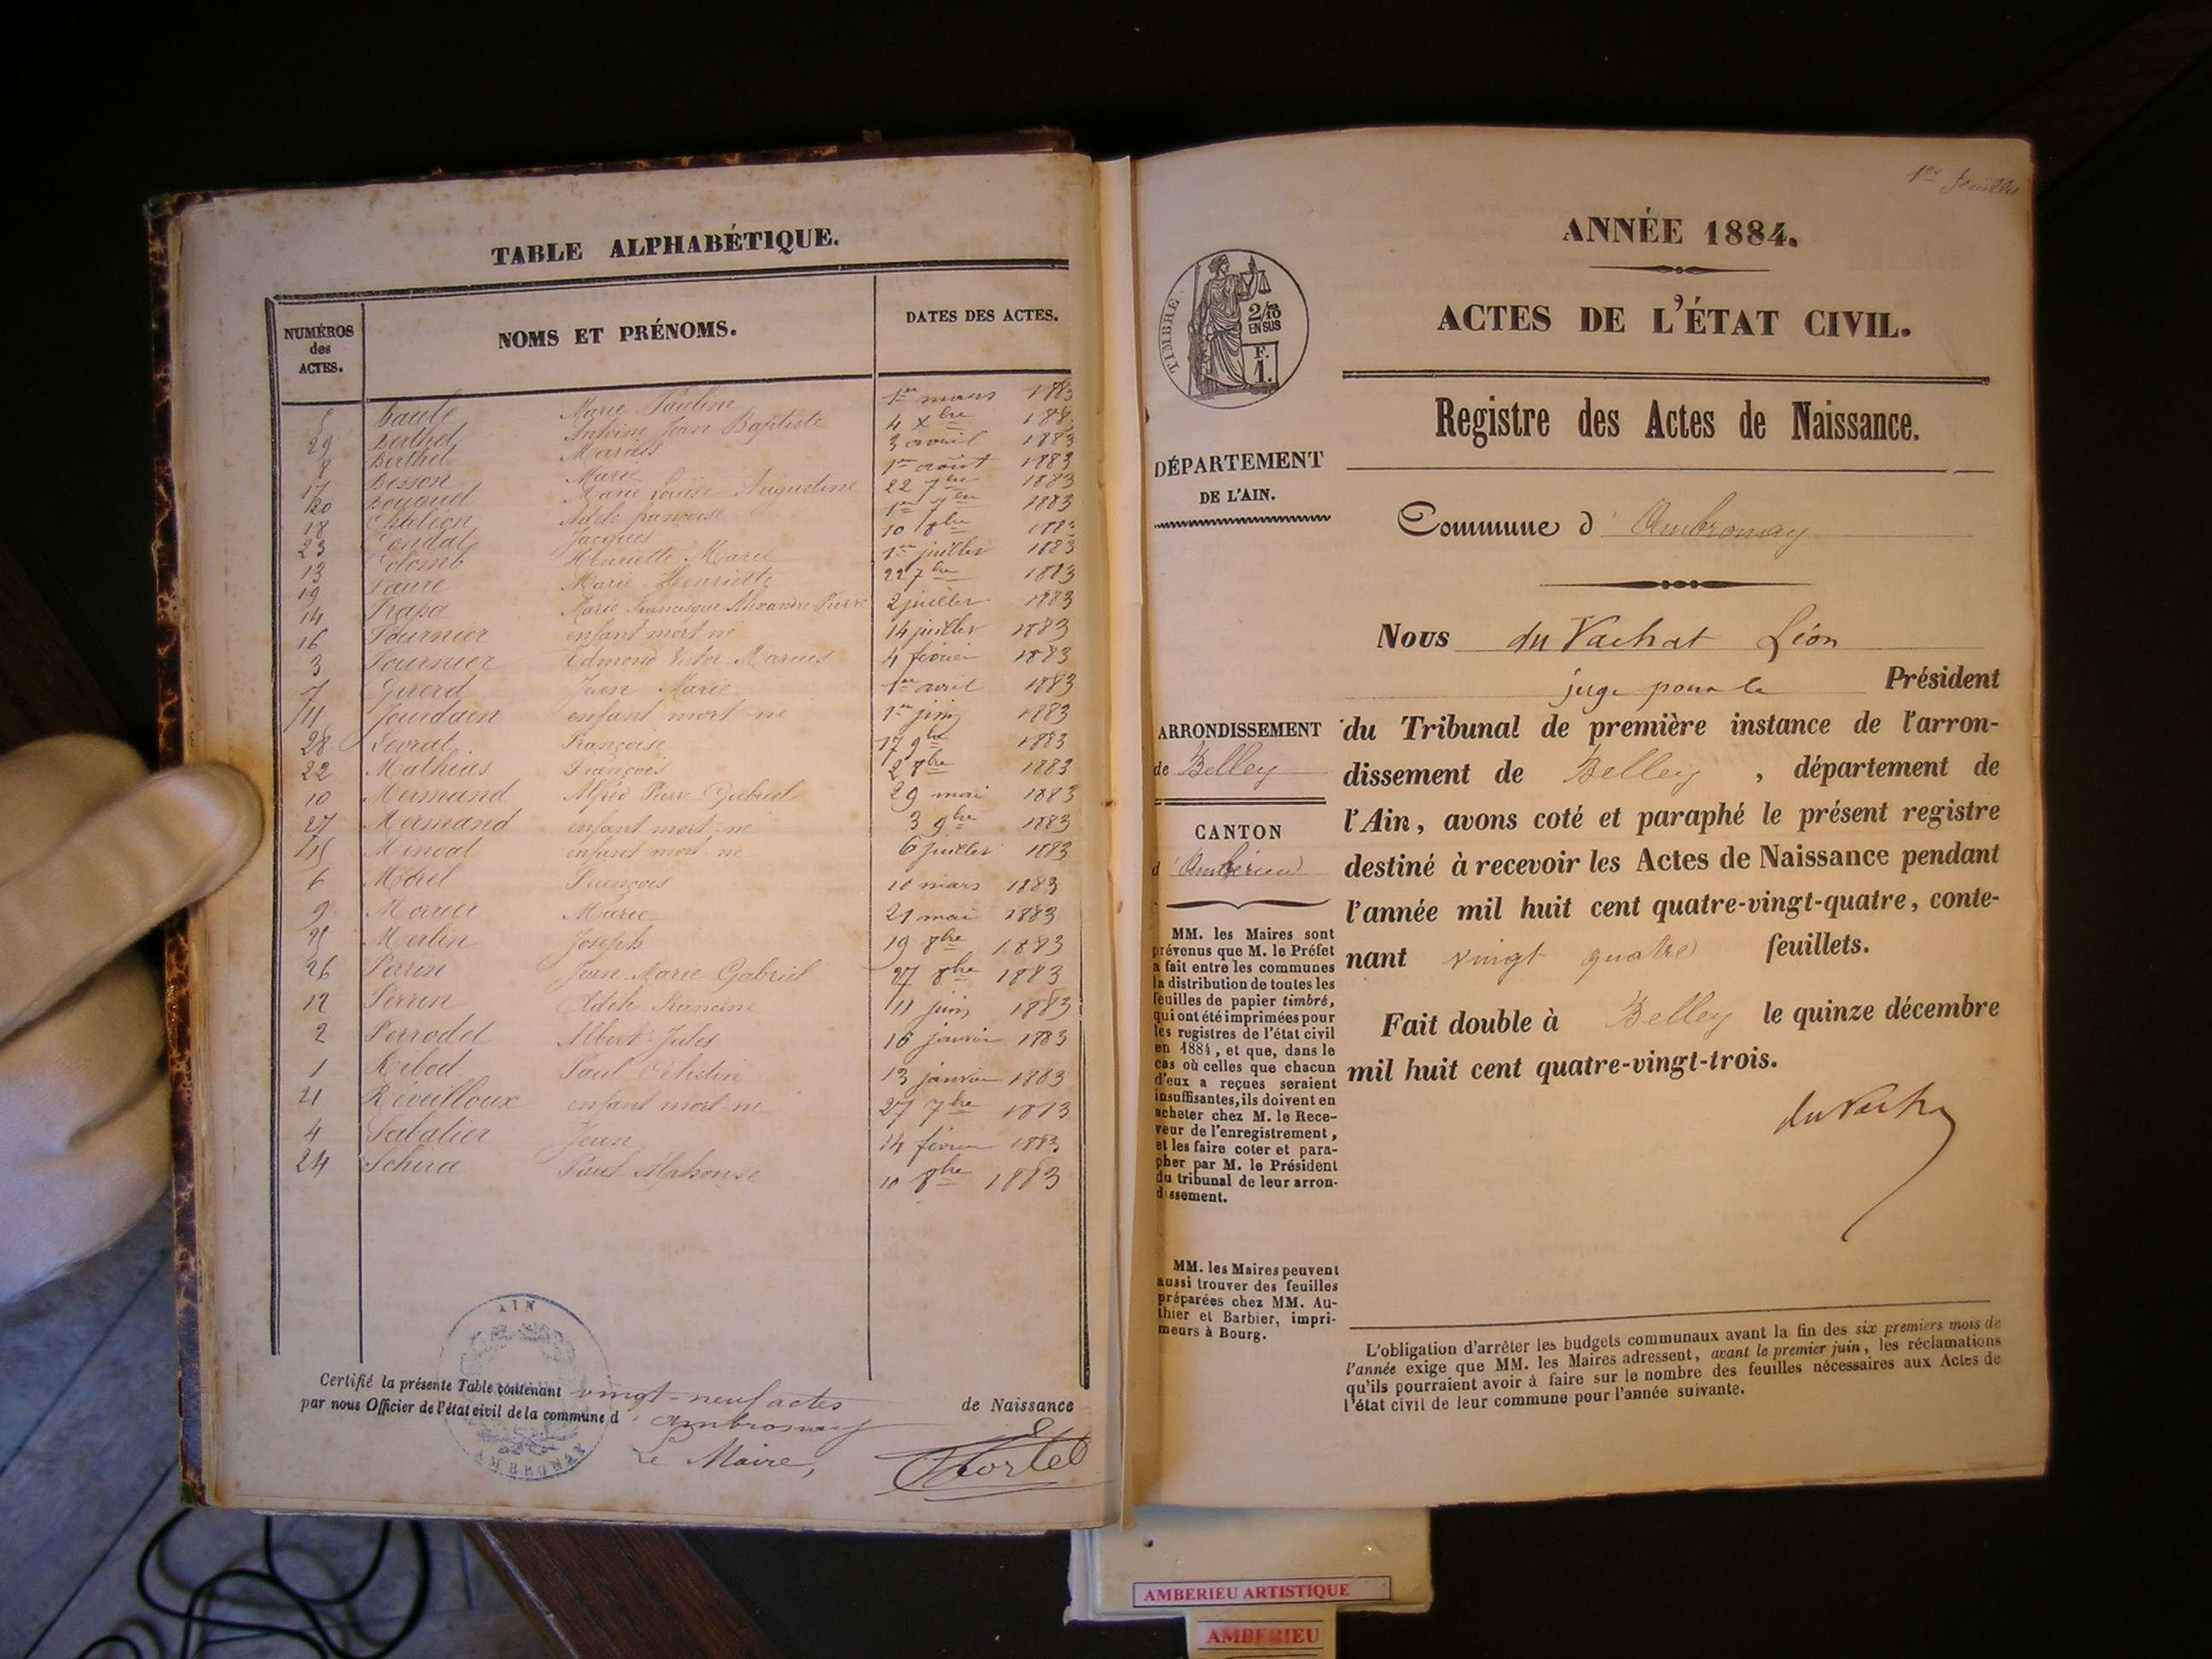 TABLE ALPHABÉTIQUE.
NUMÉROS des ACTES.
NOMS ET PRÉNOMS.
DATES DES ACTES.
Marie Pauline 1er mars 1883
29 Berthet Antoine Jean Baptiste 4 Xbre 188
8 Berthet Marius 3 avril 1883
17 Besson Marie 1er août 1883
20 Marie Louise Augustine 22 7bre 1883
18 Adèle françoise 1er 7bre 1883
23 Jacques 10 8bre 1883
13 Colomb Henriette Marie 1er juillet 1883
19 Faure Marie Henriette 22 7bre 1883
14 Marie Francisque Alexandre Pierre 2 juillet 1883
16 Fournier enfant mort né 14 juillet 1883
3 Fournier Edmond Victor Marius 4 février 1883
7 Girerd Jean Marie 1er avril 1883
11 Jourdain enfant mort-né 1er juin 1883
28 Françoise 17 9bre 1883
22 Mathias François 2 8bre 1883
10 Mermand Alfred Pierre Gabriel 29 mai 1883
27 Mermand enfant mort-né 3 9bre 1883
15 enfant mort-né 6 juillet 1883
6 Morel François 10 mars 1883
9 Marie 21 mai 1883
25 Merlin Joseph 19 8bre 1883
26 Perrin Jean-Marie Gabriel 27 8bre 1883
12 Perrin Adèle Francine 11 juin 1883
2 Perrodet Albert-Jules 16 janvier 1883
1 Ribod Paul Célestin 13 janvier 1883
21 Réveilloux enfant mort-né 27 7bre 1883
4 Sabatier Jean 14 février 1883
24 Schira Paul Alphonse 10 8bre 1883
Certifié la présente Table contenant vingt-neuf actes de Naissance
par nous Officier de l'état civil de la commune d'Ambronay
Le Maire,
AIN
AMBRONAY
1er feuillet
ANNÉE 1884.
ACTES DE L'ÉTAT CIVIL.
TIMBRE
2/10
EN SUS
F.
1.
Registre des Actes de Naissance.
DÉPARTEMENT
DE L'AIN.
Commune d'Ambronay
Nous du Vachat Léon
juge pour le Président
ARRONDISSEMENT
de Belley
du Tribunal de première instance de l'arron-
dissement de Belley, département de
l'Ain, avons coté et paraphé le présent registre
destiné à recevoir les Actes de Naissance pendant
l'année mil huit cent quatre-vingt-quatre, conte-
nant vingt quatre feuillets.
Fait double à Belley le quinze décembre
mil huit cent quatre-vingt-trois.
du Vachat
CANTON
d'Ambérieu
MM. les Maires sont
prévenus que M. le Préfet
a fait entre les communes
la distribution de toutes les
feuilles de papier timbré,
qui ont été imprimées pour
les registres de l'état civil
en 1884, et que, dans le
cas où celles que chacun
d'eux a reçues seraient
insuffisantes, ils doivent en
acheter chez M. le Rece-
veur de l'enregistrement,
et les faire coter et para-
pher par M. le Président
du tribunal de leur arron-
dissement.
MM. les Maires peuvent
aussi trouver des feuilles
préparées chez MM. Au-
thier et Barbier, impri-
meurs à Bourg.
L'obligation d'arrêter les budgets communaux avant la fin des six premiers mois de
l'année exige que MM. les Maires adressent, avant le premier juin, les réclamations
qu'ils pourraient avoir à faire sur le nombre des feuilles nécessaires aux Actes de
l'état civil de leur commune pour l'année suivante.
AMBERIEU ARTISTIQUE
AMBERIEU